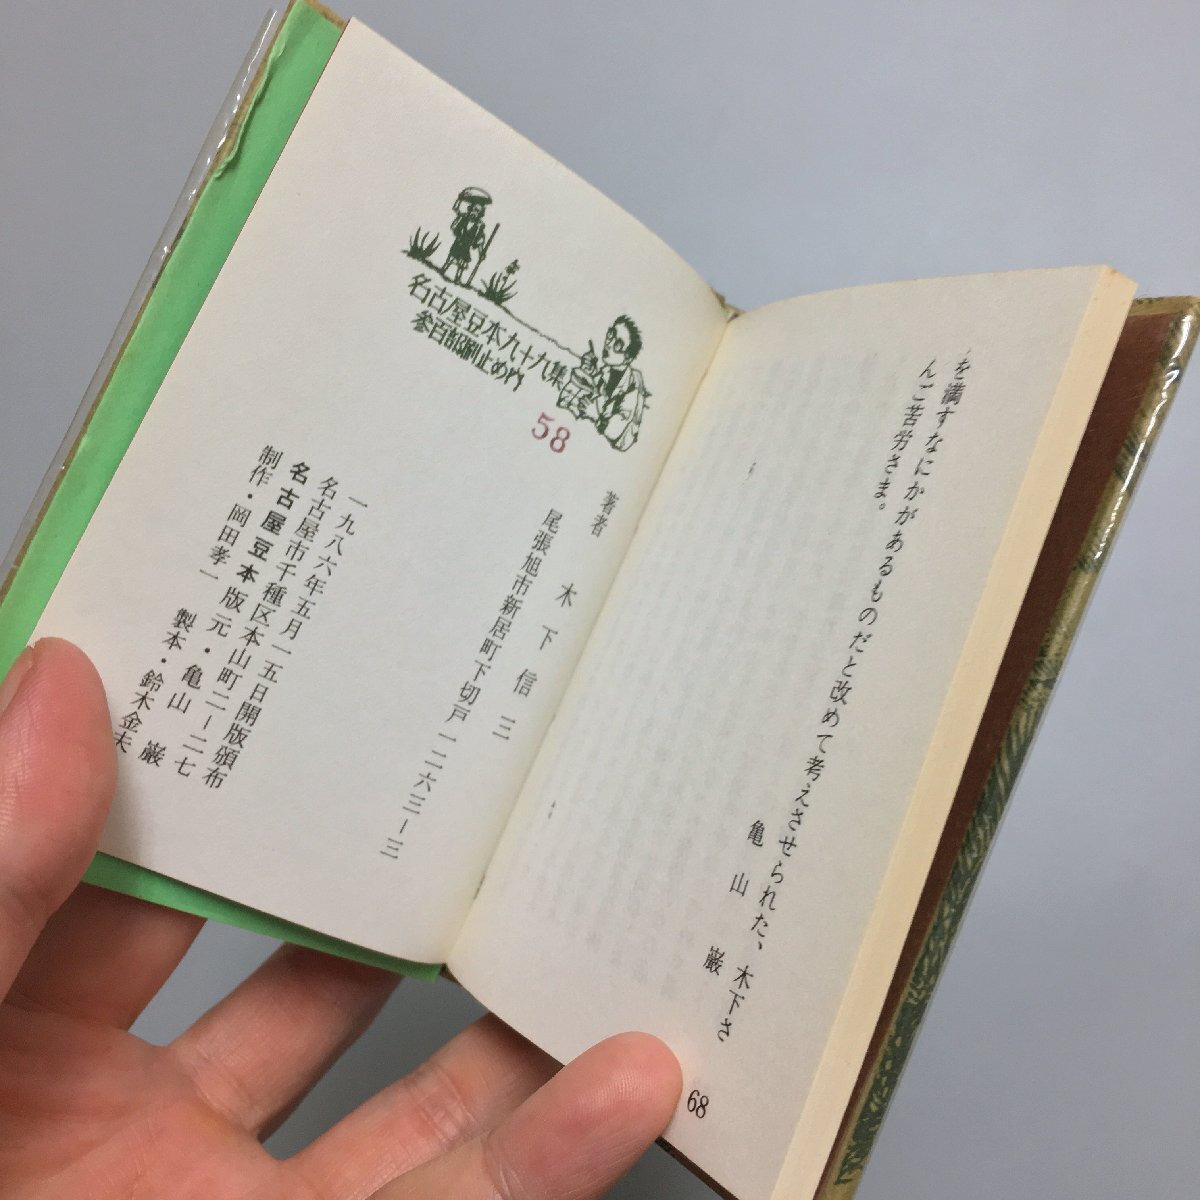 を満すなにかがあるものだと改めて考えさせられた、木下さ
んご苦労さま。
亀山 巌
68
名古屋豆本九十九集
参百部刷止め内
58
著者 木下信三
尾張旭市新居町下切戸一二六三ー三
一九八六年五月一五日開版頒布
名古屋市千種区本山町二ー二七
名古屋豆本版元・亀山 巌
制作・岡田孝一 製本・鈴木金夫